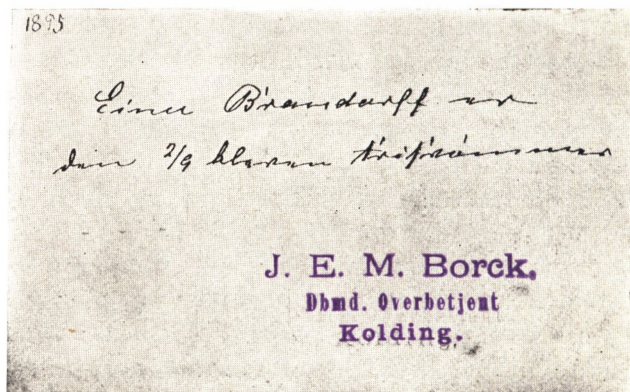 1895
Einer Brandorff er
den 2/9 bleven frisvømmer
J. E. M. Borck.
Dbmd. Overbetjent
Kolding.